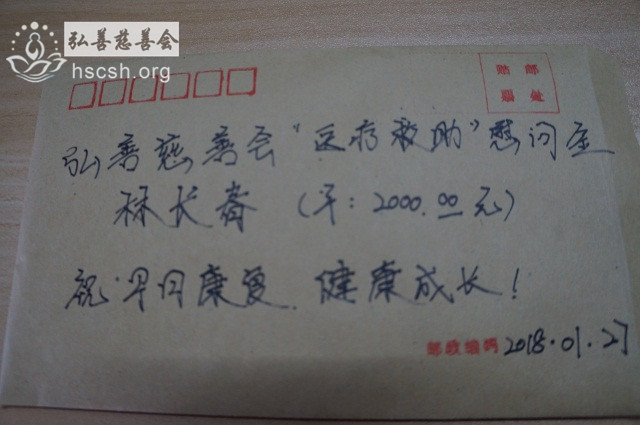 弘善慈善会
hscsh.org
贴 邮
票 处
弘善慈善会"医疗救助"慰问金
林长春 (平:2000.00元)
祝:早日康复、健康成长!
邮政编码 2018.01.27